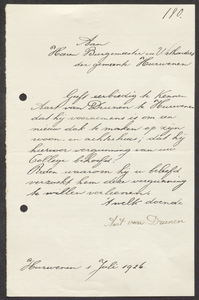 190.
Aan
Heeren Burgemeester en Wethouders
der gemeente Hurwenen
Geeft eerbiedig te kennen
Aart van Drunen te Hurwenen
dat hij voornemens is om een
nieuw dak te maken op zijn
woon en achterhuis, dat hij
hiervoor vergunning van uw
College behoeft
Reden waarom hij u beleefd
verzoekt hem deze vergunning
te willen verleenen.
't welk doende
Art van Drunen
Hurwenen 1 Juli 1926